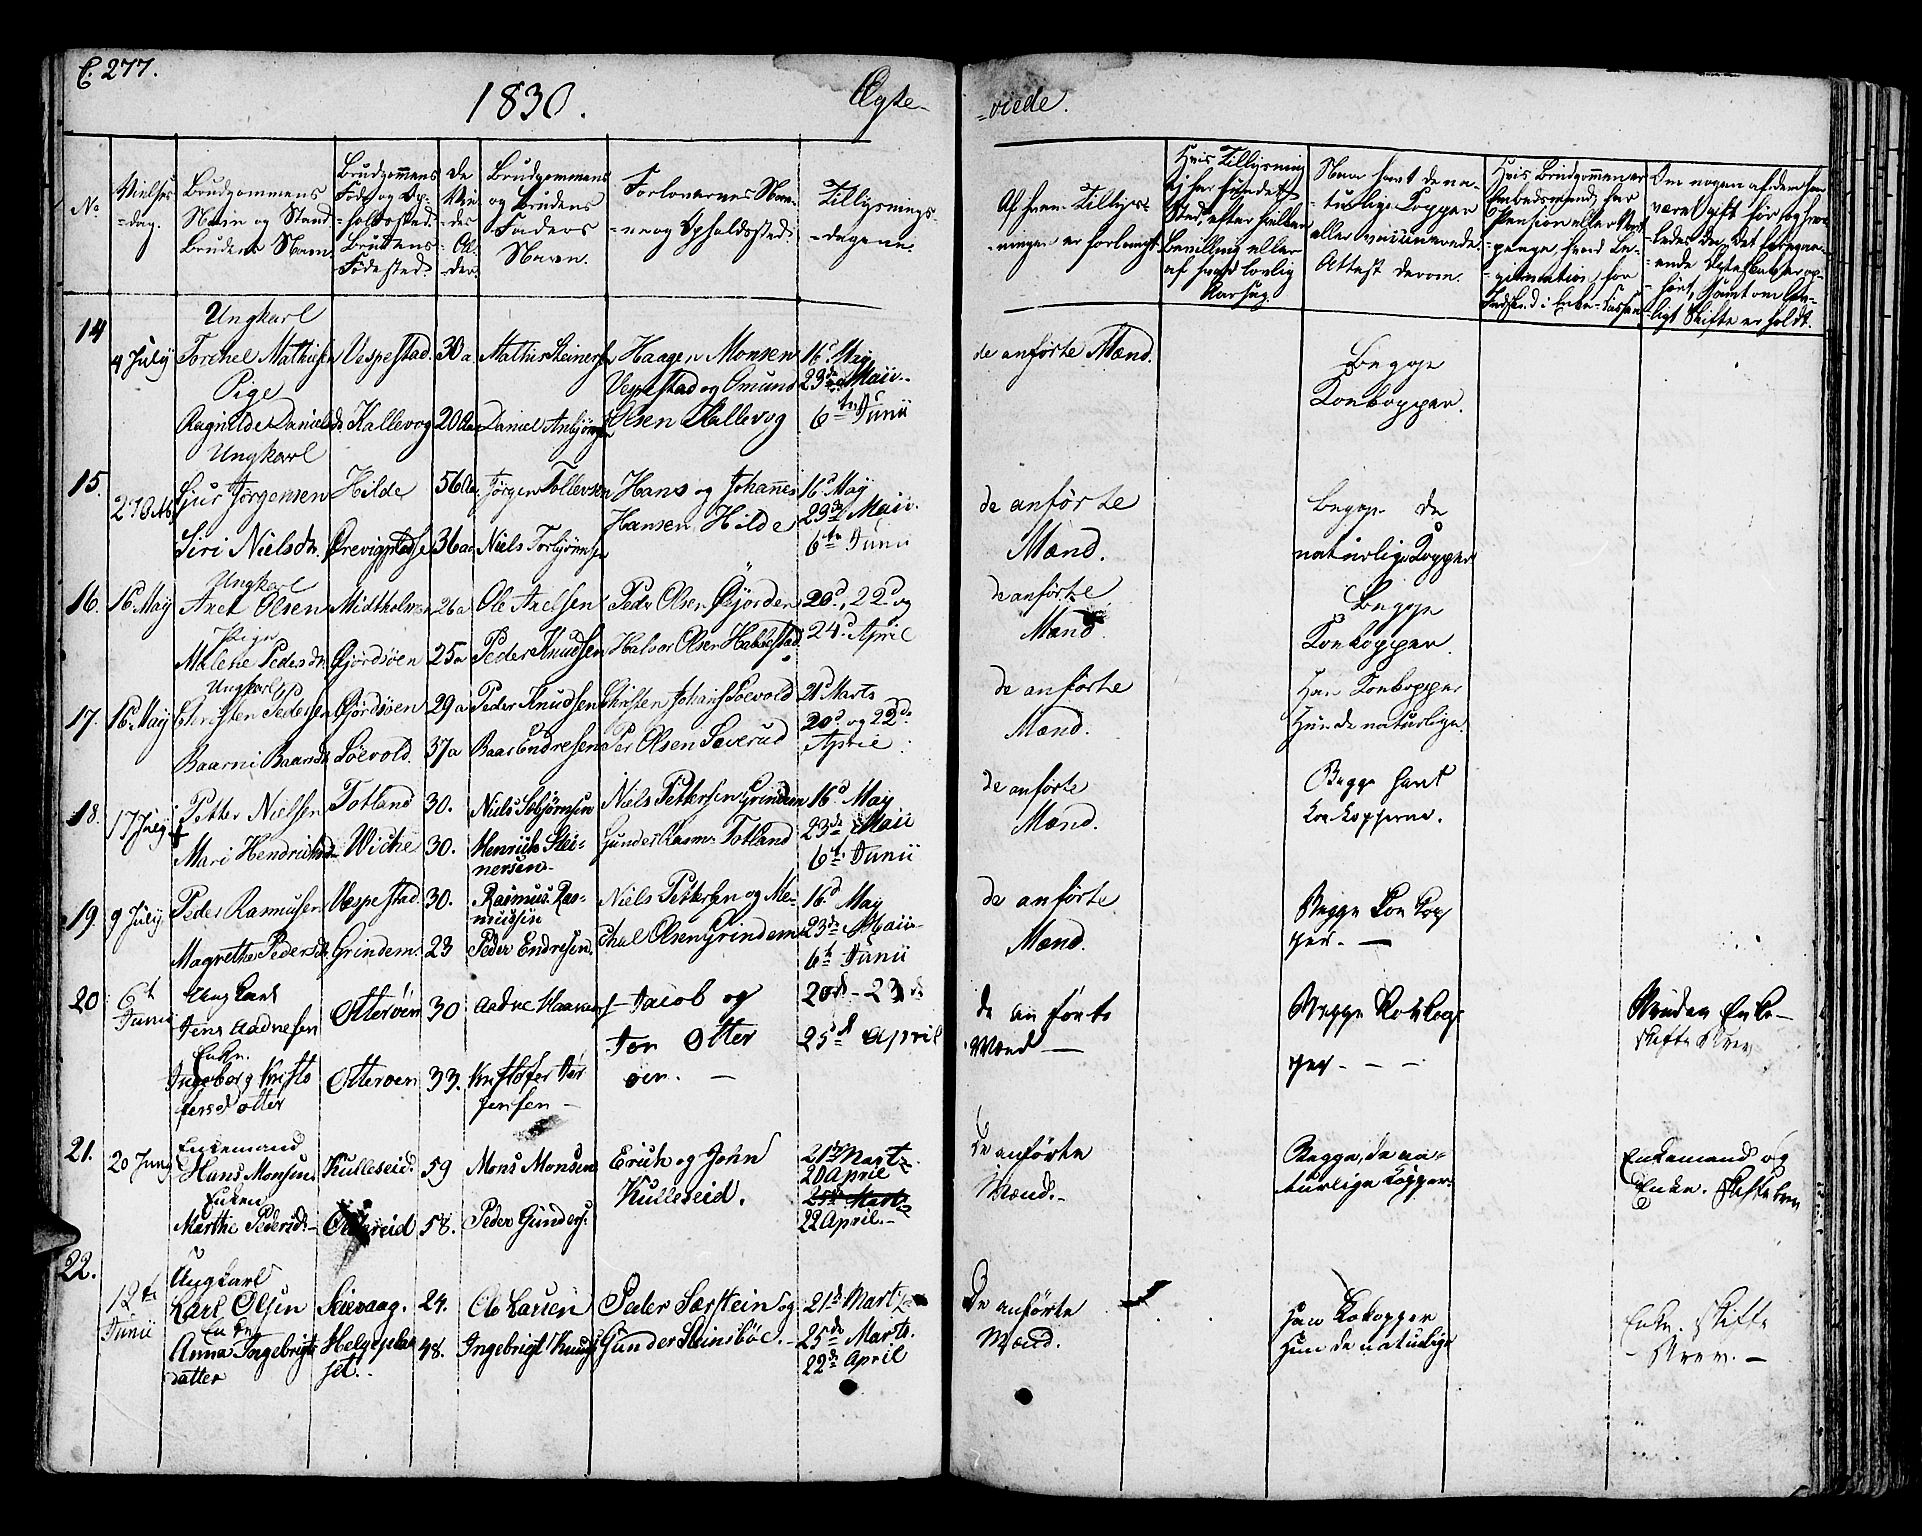 C. 277.
1830. Ægte-
-viede.
No
Vielses
-dag.
Brudgommens
Navn og Stand
Brudens Navn.
Brudgommens
Føde og Op-
-holdssted.
Brudens
Fødested.
De
Vie-
-des
Al-
-der.
Brudgommens
og Brudens
Faders
Navn.
Forlovernes Nav-
-ne og Opholdssted.
Tillysnings-
-dagene.
Af hvem Tillys-
-ningen er forlangt.
Hvis Tillysning
ej har fundet
Sted, efter hvilken
Bevilling eller
af hvad lovlig
Aarsag.
Naar havt de na-
-turlige Kopper
eller vaccinerede
Attest derom.
Hvis Brudgommen er
Embedsmand, har
Pension eller Vart-
-penge, hvad Le-
-gitimation for
Indskud i Enke-Cassen
Om nogen af dem har
været gift før og hvor-
-ledes da det foregaa-
-ende Ægteskab er op-
-hørt, samt om lov-
-ligt Skifte er holdt.
14
4 July
Ungkarl
Torchel Mathisen
Pige
Ragnilde Danielsd.
Vespestad.
Kallevog
30 a
20 Aa
Mathis Steinersen
Daniel Anbjørnsen
Haagen Monsen
Vespestad og Omund
Olsen Kallevog
16d May
23de Maii
6te Junii
de anførte Mænd.
Begge
Koekopper.
15.
Ungkarl
Sjur Jørgensen
Siri Nielsdr.
Hilde
56 Aa
36 aa
Jørgen Tollevsen
Niels Torbjørnsen
Hans og Johannes
Hansen Hilde
16d May
23de Maii
6te Junii
de anførte
Mænd.
Begge de
naturlige Kopper
16.
16d May
Ungkarl
Axel Olsen
Pige
Malene Pedersdr.
26 a
25 a
Ole Axelsen
Peder Knudsen
Peder Olsen Gjordøen
Halvor Olsen Habbestad
20d, 22d og
24d April
de anførte
Mænd.
Begge
Koekopper.
17.
16d May
Ungkarl
Christen Pedersen
Baarni Baarsdr.
Gjordøen
Løevold.
29 a
37 a
Peder Knudsen
Baar Endresen
Christen Johans Løevold
Per Olsen Sæverud
21d Marts
20d og 22de
April
de anførte
Mænd.
Han Koekopper
Hun de naturlige.
18.
17 July
Petter Nielsen
Mari Hendrichsd.
Totland
Wiche
30.
30.
Niels Asbjørnsen
Henrich Stei-
nersen
Niels Pettersen Grindem
Gunder Rasm. Totland
16d May
23de Maii
6te Junii
de anførte
Mænd.
Begge havt
Koekopperne.
19.
9 July
Peder Rasmusen
Magrethe Pedersdr.
Vespestad.
Grindem.
30.
23
Rasmus Ras-
mussen
Peder Endresen.
Niels Pettersen og Mi-
chal Olsen Grindem
16d May
23de Maii
6te Junii
de anførte
Mænd.
Begge Koekop
per. —
20
6t
Junii
Ungkarl
Jens Aadnesen
Enke.
Ingeborg Kristo
fersdotter
Otterøen
Otterøen
30
33.
Kristofer Tør
jensen —
Jacob og
Jon Otter
øen. —
20de - 23de
25de April
de anførte
Mænd —
Begge Koekop-
per. - - -
Bruden Enke -
skifte Brev
21.
20 Juny
Enkemand
Hans Monsen
Enken
Marthe Pedersd.
Kulleseid.
59
58.
Mons Monsen
Peder Gunders.
Erich og John
Kulleseid.
21de Marts
20 April
22 April.
De anførte
Mænd.
Begge, de na-
turlige Kopper
Enkemand og
Enke. Skiftebrev
22.
12te
Junii
Ungkarl
Karl Olsen
Enke
Anna Ingebrigts
datter
Seievaag.
24.
48.
Ole Larsen
Ingebrigt Knuds
Peder Særstein og
Gunder Steinsbøe.
21de Marts
25de Marts.
22de April
De anførte
Mænd.
Han Kokopper
Hun de naturlige
Enke. Skifte
Brev. —